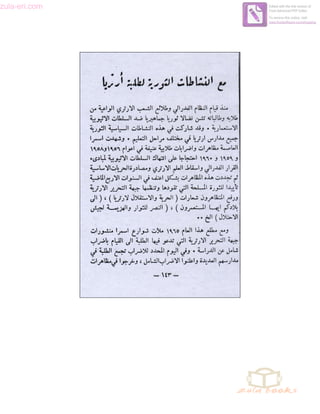 zula-eri.com
Edited with the trial version of
Foxit Advanced PDF Editor
To remove this notice, visit:
www.foxitsoftware.com/shopping
مع النشاطات الثورية لطلبة أرتريا
منذ قيام النظام الفدرالي وطلائع الشعب الارتري الواعية من
طلابه وطالباته تشن نضالا ثوريا جماهيريا ضد السلطات الاثيوبية
الاستعمارية ٠ وقد شاركت في هذه النشاطات السياسية الثورية
جميع مدارس ارتريا في مختلف مراحل التعليم ٠ وشهدت اسمرا
العاصمة مظاهرات واضرابات طلابية عنيفة في أعوام ١٩٥٦و١٩٥٨
و ١٩٥٩ و ١٩٦٠ احتجاجا على انتهاك السلطات الاثيوبية لمبادىء
القرار الفدرالي واسقاط العلم الارتري ومصادرة الحريات الاساسية
ثم تجددت هذه المظاهرات بشكل اعنف في السنوات الاربع الماضية
تأييدا للثورة المسلحة التي تقودها وتنظمها جبهة التحرير الارترية
ورفع المتظاهرون شعارات ( الحرية والاستقلال لارتريا ) ، ( الى
بلادكم ايها المستعمرون ) ، ( النصر للثوار والهزيمة لجيش
الاحتلال ) الخ ٠٠
ومع مطلع هذا العام ١٩٦٥ ملات شوارع اسمرا منشورات
جبهة التحرير الارترية التي تدعو فيها الطلبة الى القيام باضراب
شامل عن الدراسة ٠ وفي اليوم المحدد للاضراب تجمع الطلبة في
مدارسهم العديدة واعلنوا الاضراب الشامل ، وخرجوا في مظاهرات
— ١٤٣ —
zula books